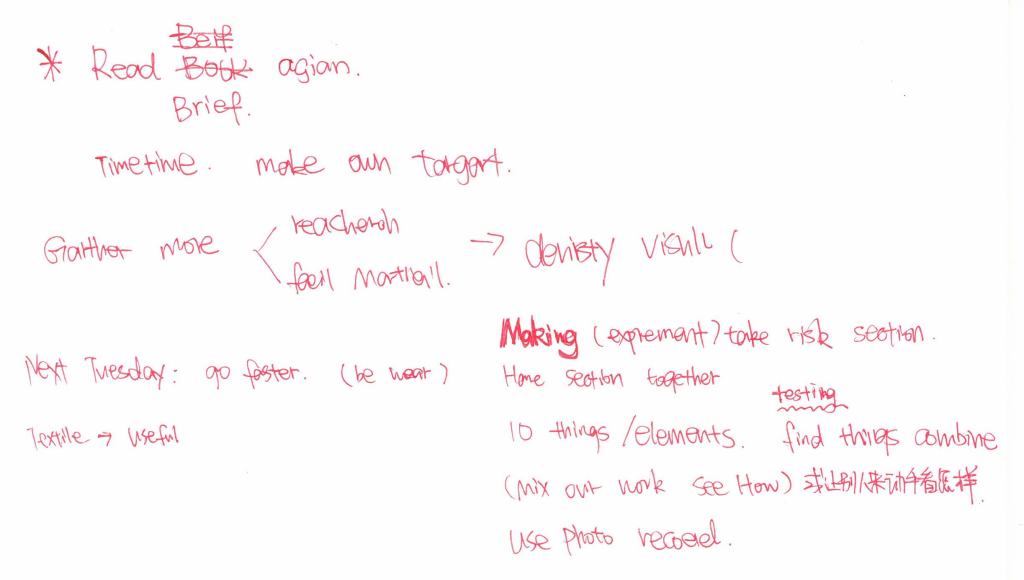 Beif
* Read Book agian.
Brief.
Timetime. make own targart.
Garther more
reacherch
feell Martliall.
→ denisty visull (
Making (exprement) take risk section.
Next Tuesday: go faster. (be wear)
Hane section together
testing
Textile → useful
10 things/elements. find things combine
(mix out work see How) 或让别人来动手看怎样.
use photo recoed.